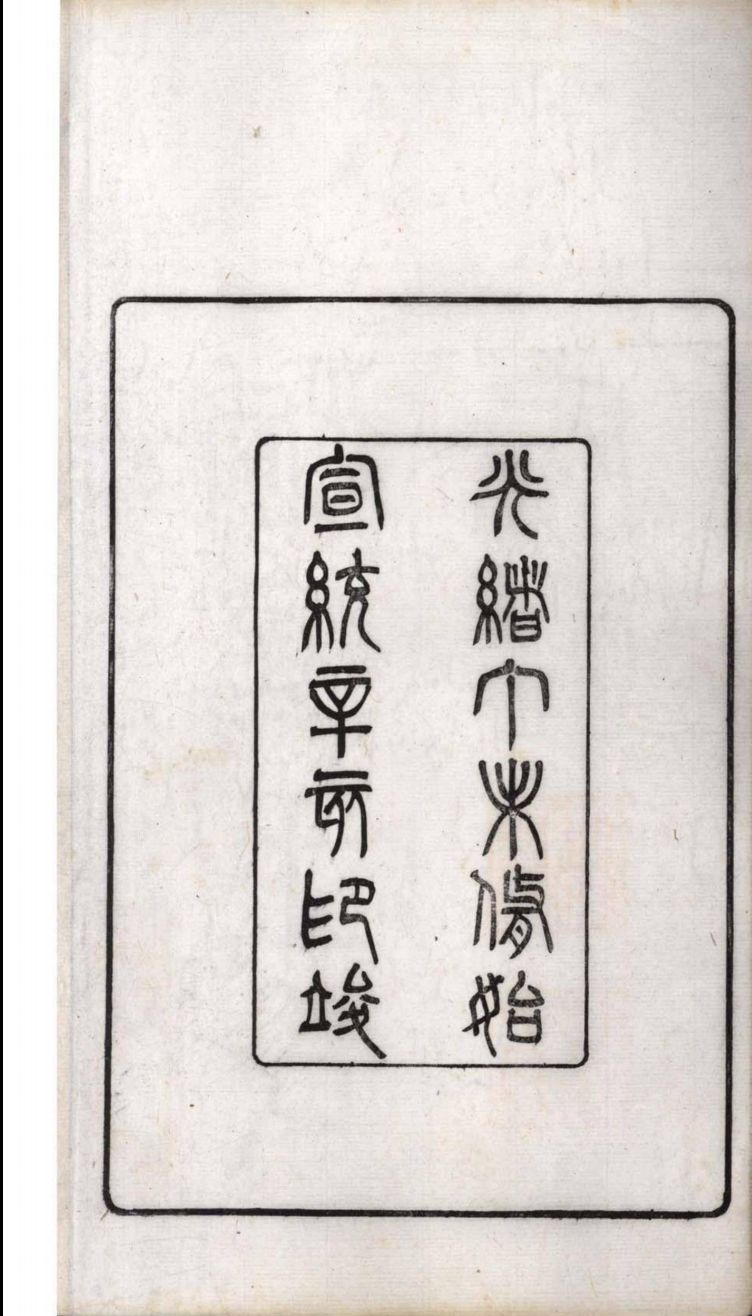 光緒丁未脩始
宣統辛亥印竣